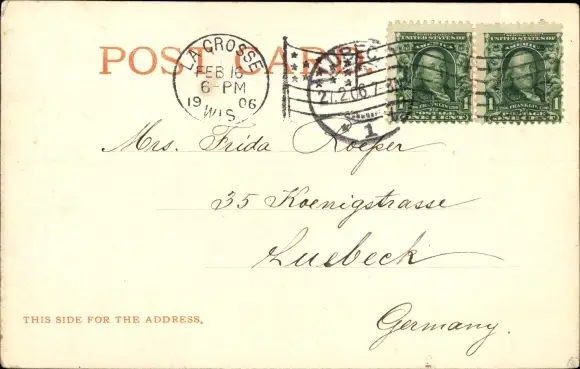 POST CARD.
LA CROSSE
FEB 16
6-PM
1906
WIS
LUBECK
27.2.06.7-
1
UNITED STATES OF
AMERICA
FRANKLIN
1 1
UNITED STATES OF
AMERICA
FRANKLIN
1 1
Mrs. Frida Roeper
35 Koenigstrasse
Luebeck
Germany.
THIS SIDE FOR THE ADDRESS.